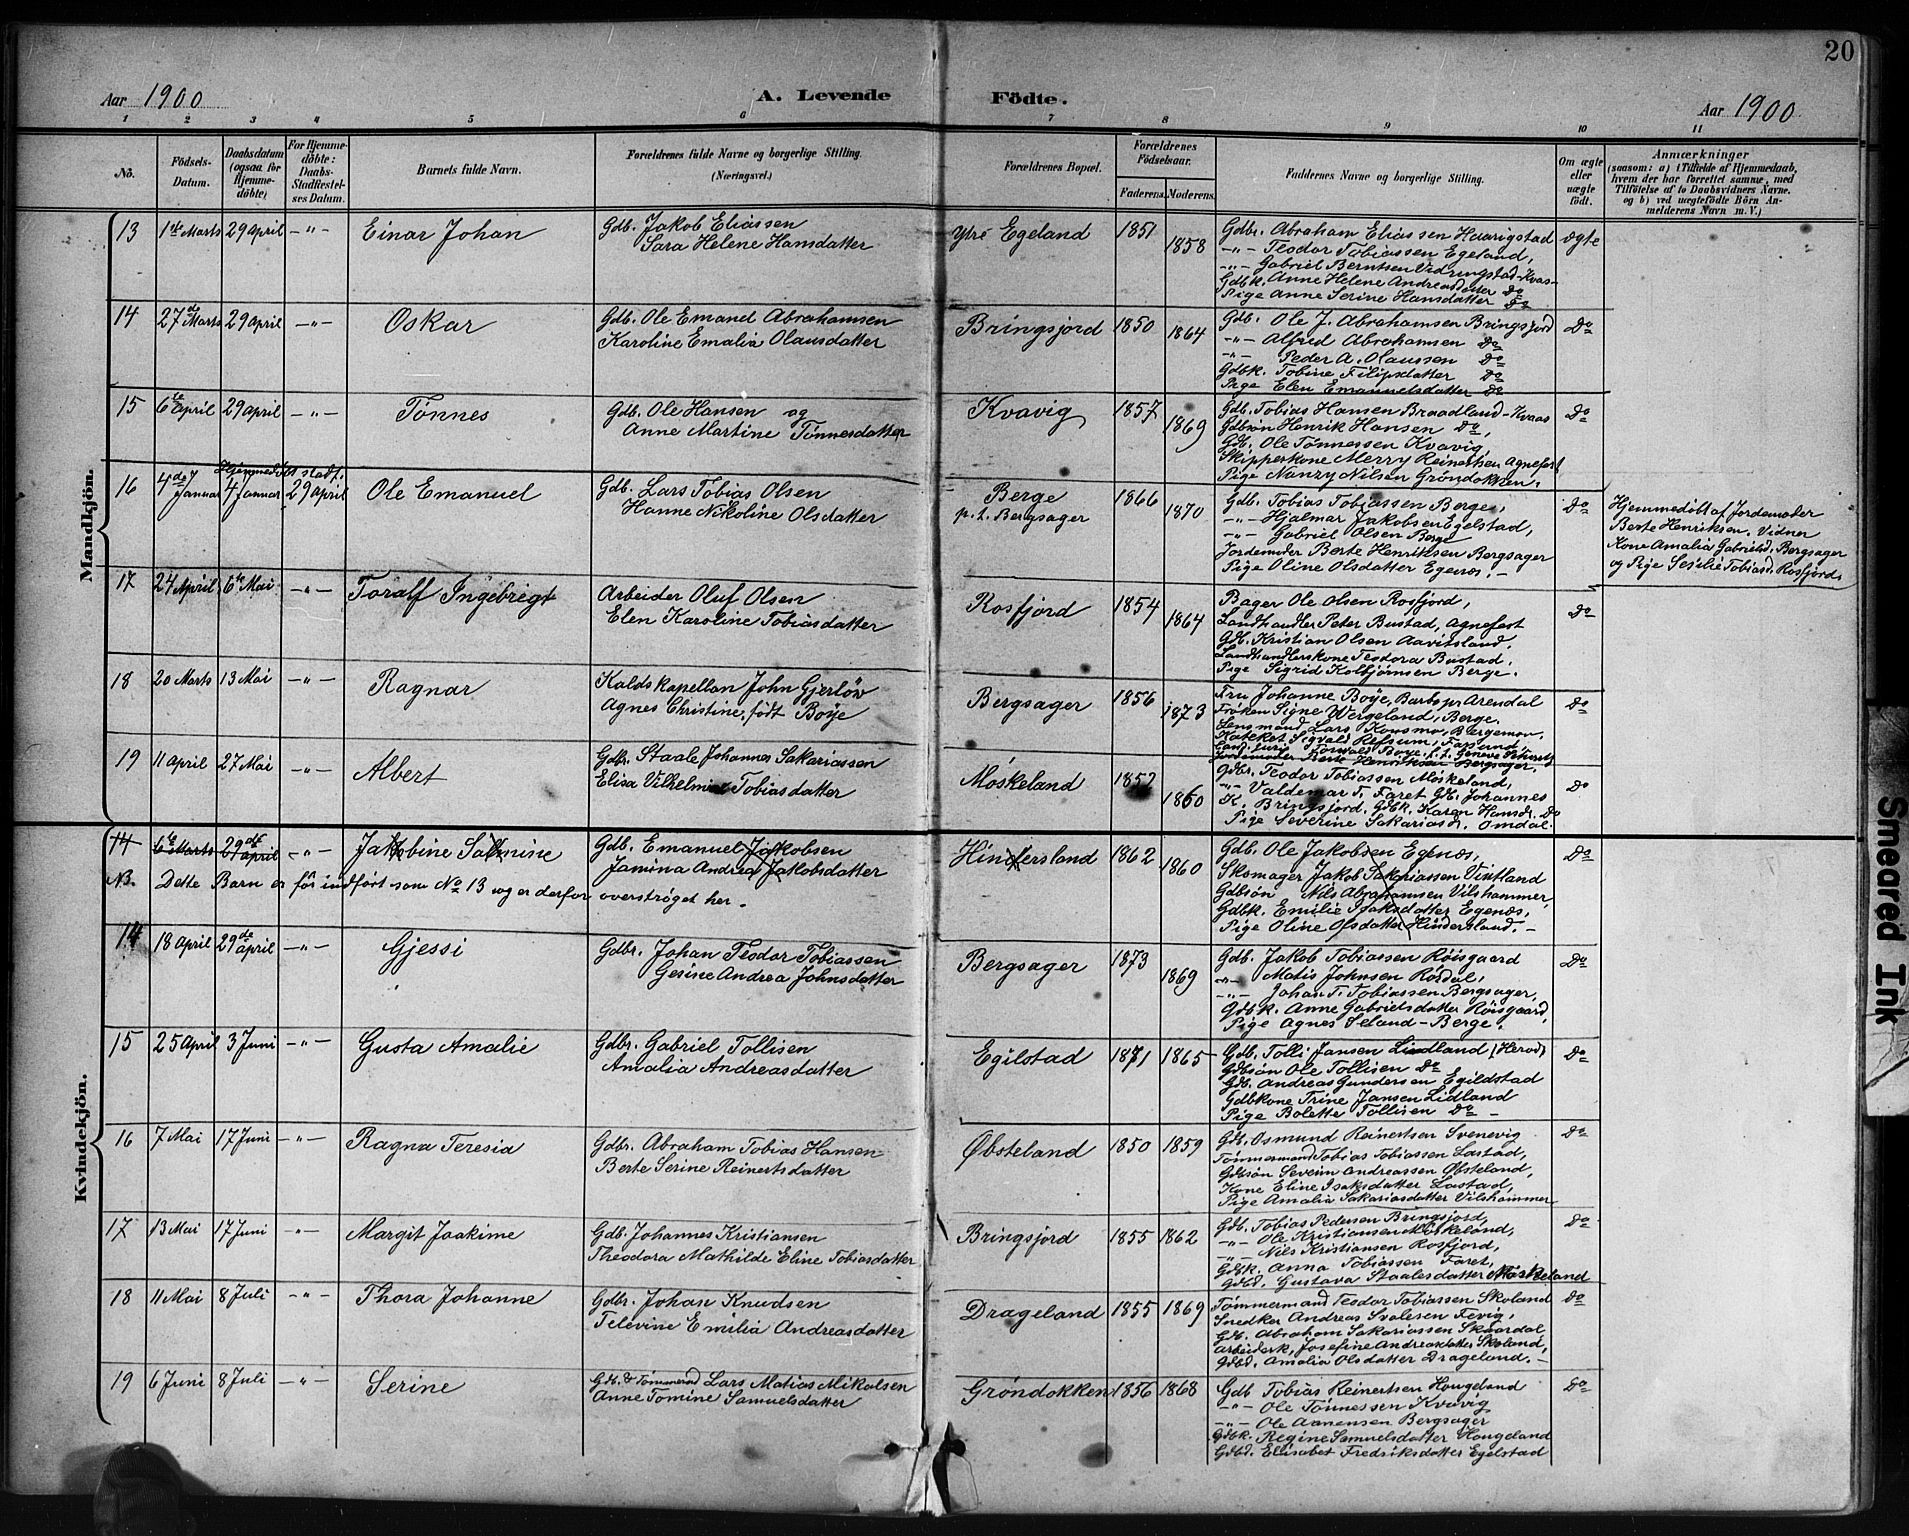 20
Aar 1900
A. Levende
Födte.
Aar 1900
1 2 3 4 5 6 7 8 9 10 11
No.
Födsels-Datum.
Daabsdatum (ogsaa for Hjemme-döbte)
For Hjemme-döbte: Daabs-Stadfæstelses Datum.
Barnets fulde Navn.
Forældrenes fulde Navne og borgerlige Stilling. (Næringsvei.)
Forældrenes Bopæl.
Forældrenes Födselsaar.
Faderens. Moderens.
Faddernes Navne og borgerlige Stilling.
Om ægte eller uægte født.
Anmærkninger
(saasom: a) i Tilfælde af Hjemmedaab,
hvem der har forrettet samme, med
Tilföielse af to Daabsvidners Navne.
og b) ved uægtefödte Börn An-
melderens Navn m. V.)
Mandkjön.
13 1ste Marts 29 April -"- Einar Johan
Gdb. Jakob Eliassen
Sara Helene Hansdatter
Ytre Egeland 1851 1858
Gdbr. Abraham Eliassen Haarigstad
-"- Teodor Tobiassen Egeland,
-"- Gabriel Berntsen Vidringstad-Kvaas-
Gdbk. Anne Helene Andreasdatter Do
Pige Anne Serine Hansdatter Do
ægte
14 27de Marts 29 April -"- Oskar
Gdb. Ole Emand Abrahamsen
Karoline Emalia Olausdatter
Bringsjord 1850 1864
Gdb. Ole J. Abrahamsen Bringsjord
-"- Alfred Abrahamsen Do
-"- Peder A. Olaussen Do
Gdbk. Tobine Filipsdatter Do
Pige Elen Emanuelsdatter Do
Do
15 6te April 29 April -"- Tønnes
Gdb. Ole Hansen og
Anne Martine Tønnesdatter
Kvavig 1857 1869
Gdb. Tobias Hansen Braadland-Kvaas
Gdbsøn Henrik Hansen Do,
Gdb. Ole Tønnessen Kvavig,
Skipperkone Merry Reinertsen Agnefest
Pige Nanzy Nilsen Grøndokken.
Do
16 4de Januar Hjemmedøbt 4 Januar stadf. 29 April Ole Emanuel
Gdb. Lars Tobias Olsen
Hanne Nikoline Olsdatter
Berge
p.t. Bergsager
1866 1870
Gdb. Tobias Tobiassen Berge,
-"- Hjalmar Jakobsen Egelstad,
-"- Gabriel Olsen Berge
Jordemoder Berte Henriksen Bergsager
Pige Oline Olsdatter Egenæs. -
Do
Hjemmedøbt af Jordemoder
Berte Henriksen. Vidner
Kone Amalia Gabrielsd. Bergsager
og Pige Sesilie Tobiasd. Rosfjord.
17 24 April 6te Mai -"- Toralf Ingebrigt
Arbeider Oluf Olsen
Elen Karoline Tobiasdatter
Rosfjord 1854 1864
Bager Ole Olsen Rosfjord,
Landhandler Peter Bustad, Agnefest
Gdb. Kristian Olsen Aavitsland.
Landhandlerskone Teodora Bustad,
Pige Sigrid Kolbjørnsen Berge.
Do
18 20 Marts 13 Mai -"- Ragnar
Kaldskapellan John Gjerløv
Agnes Christine, født Boye
Bergsager 1856 1873
Fru Johanne Boye, Barbo pr. Arendal
Frøken Signe Wergeland, Berge.
Lensmand Lars Kousmo, Bergemon,
Kateket Sigvald Refsum, Farsund,
Cand. juris Torvald Boye, p.t. Geneve Schweitz
Jordemoder Berte Henriksen Bergsager.
Do
19 11 April 27 Mai -"- Albert
Gdbr. Staale Johannes Sakariassen
Elisa Vilhelmine Tobiasdatter
Møskeland 1857 1860
Gdbr. Teodor Tobiassen Møskeland,
-"- Valdemar T. Faret Gb. Johannes
K. Bringsjord, Gdbk. Karen Hansd. Do
Pige Severine Sakariasd. Omdal.
Do
Kvindekjön.
14 6te Marts 29de April -"- Jakobine Salmine
Gdb. Emanuel Jakobsen
Jamina Andrea Jakobsdatter
Hindersland 1862 1860
Gdb. Ole Jakobsen Egenæs,
Skomager Jakob Sakariassen Vintland
Gdbsøn Nils Abrahamsen Vilshammer,
Gdbk. Emilie Isaksdatter Egenæs,
Pige Oline Olsdatter Hindersland. -
Do
NB. Dette Barn er før indført som No 13 og er derfor overstrøget her.
14 18 April 29de April -"- Gjessi
Gdbr. Johan Teodor Tobiassen
Gesine Andrea Johnsdatter
Bergsager 1873 1869
Gdb. Jakob Tobiassen Røisgaard
-"- Matis Johnsen Rødal,
-"- Johan T. Tobiassen Bergsager,
Gdbk. Anne Gabrielsdatter Røisgaard,
Pige Agnes Seland-Berge.
Do
15 25 April 3 Juni -"- Gusta Amalie
Gdbr. Gabriel Tollisen
Amalia Andreasdatter
Egilstad 1871 1865
Gdb. Tolli Jansen Lindland (Herod)
Gdbsøn Ole Tollisen Do
Gdb. Andreas Gundersen Egildstad
Gdbkone Trine Jansen Lidland
Pige Bolette Tollisen Do -
Do
16 7 Mai 17 Juni -"- Ragna Teresia
Gdbr. Abraham Tobias Hansen
Berte Serine Reinertsdatter
Øbsteland 1850 1859
Gdb. Osmund Reinertsen Svenevig
Tømmermand Tobias Tobiassen Lastad,
Gdbsøn Severin Andreassen Øbsteland,
Kone Eline Isaksdatter Lastad,
Pige Amalia Sakariasdatter Vilshammer
Do
17 13 Mai 17 Juni -"- Margit Joakime
Gdb. Johannes Kristiansen
Theodora Mathilde Eline Tobiasdatter
Bringsjord 1855 1862
Gdb. Tobias Pedersen Bringsjord,
-"- Ole Kristiansen Møskeland,
-"- Nils Kristiansen Rosfjord,
Gdbk. Anna Tobiassen Faret,
Gdbd. Gustava Staalesdatter Møskeland
Do
18 11 Mai 8 Juli -"- Thora Johanne
Gdbr. Johan Knudsen
Televine Emilia Andreasdatter
Drageland 1855 1869
Tømmermand Teodor Tobiassen Skoland
Snedker Andreas Svalesen Fevig,
Gdb. Abraham Sakariassen Skaardal,
Arbeiderk, Josefine Andreasdatter Skoland,
Gdbd. Amalia Olsdatter Drageland. -
Do
19 6 Juni 8 Juli -"- Serine
Gdb. & Tømmermd Lars Matias Mikalsen
Anne Tomine Samuelsdatter
Grøndokken 1856 1868
Gdb Tobias Reinertsen Hougeland
-"- Ole Tønnessen Kvavig
-"- Ole Aanensen Bergsager
Gdbk. Regine Samuelsdatter Hougeland
Gdbd. Elisabet Fredriksdatter Egelstad
Do
Smeared Ink